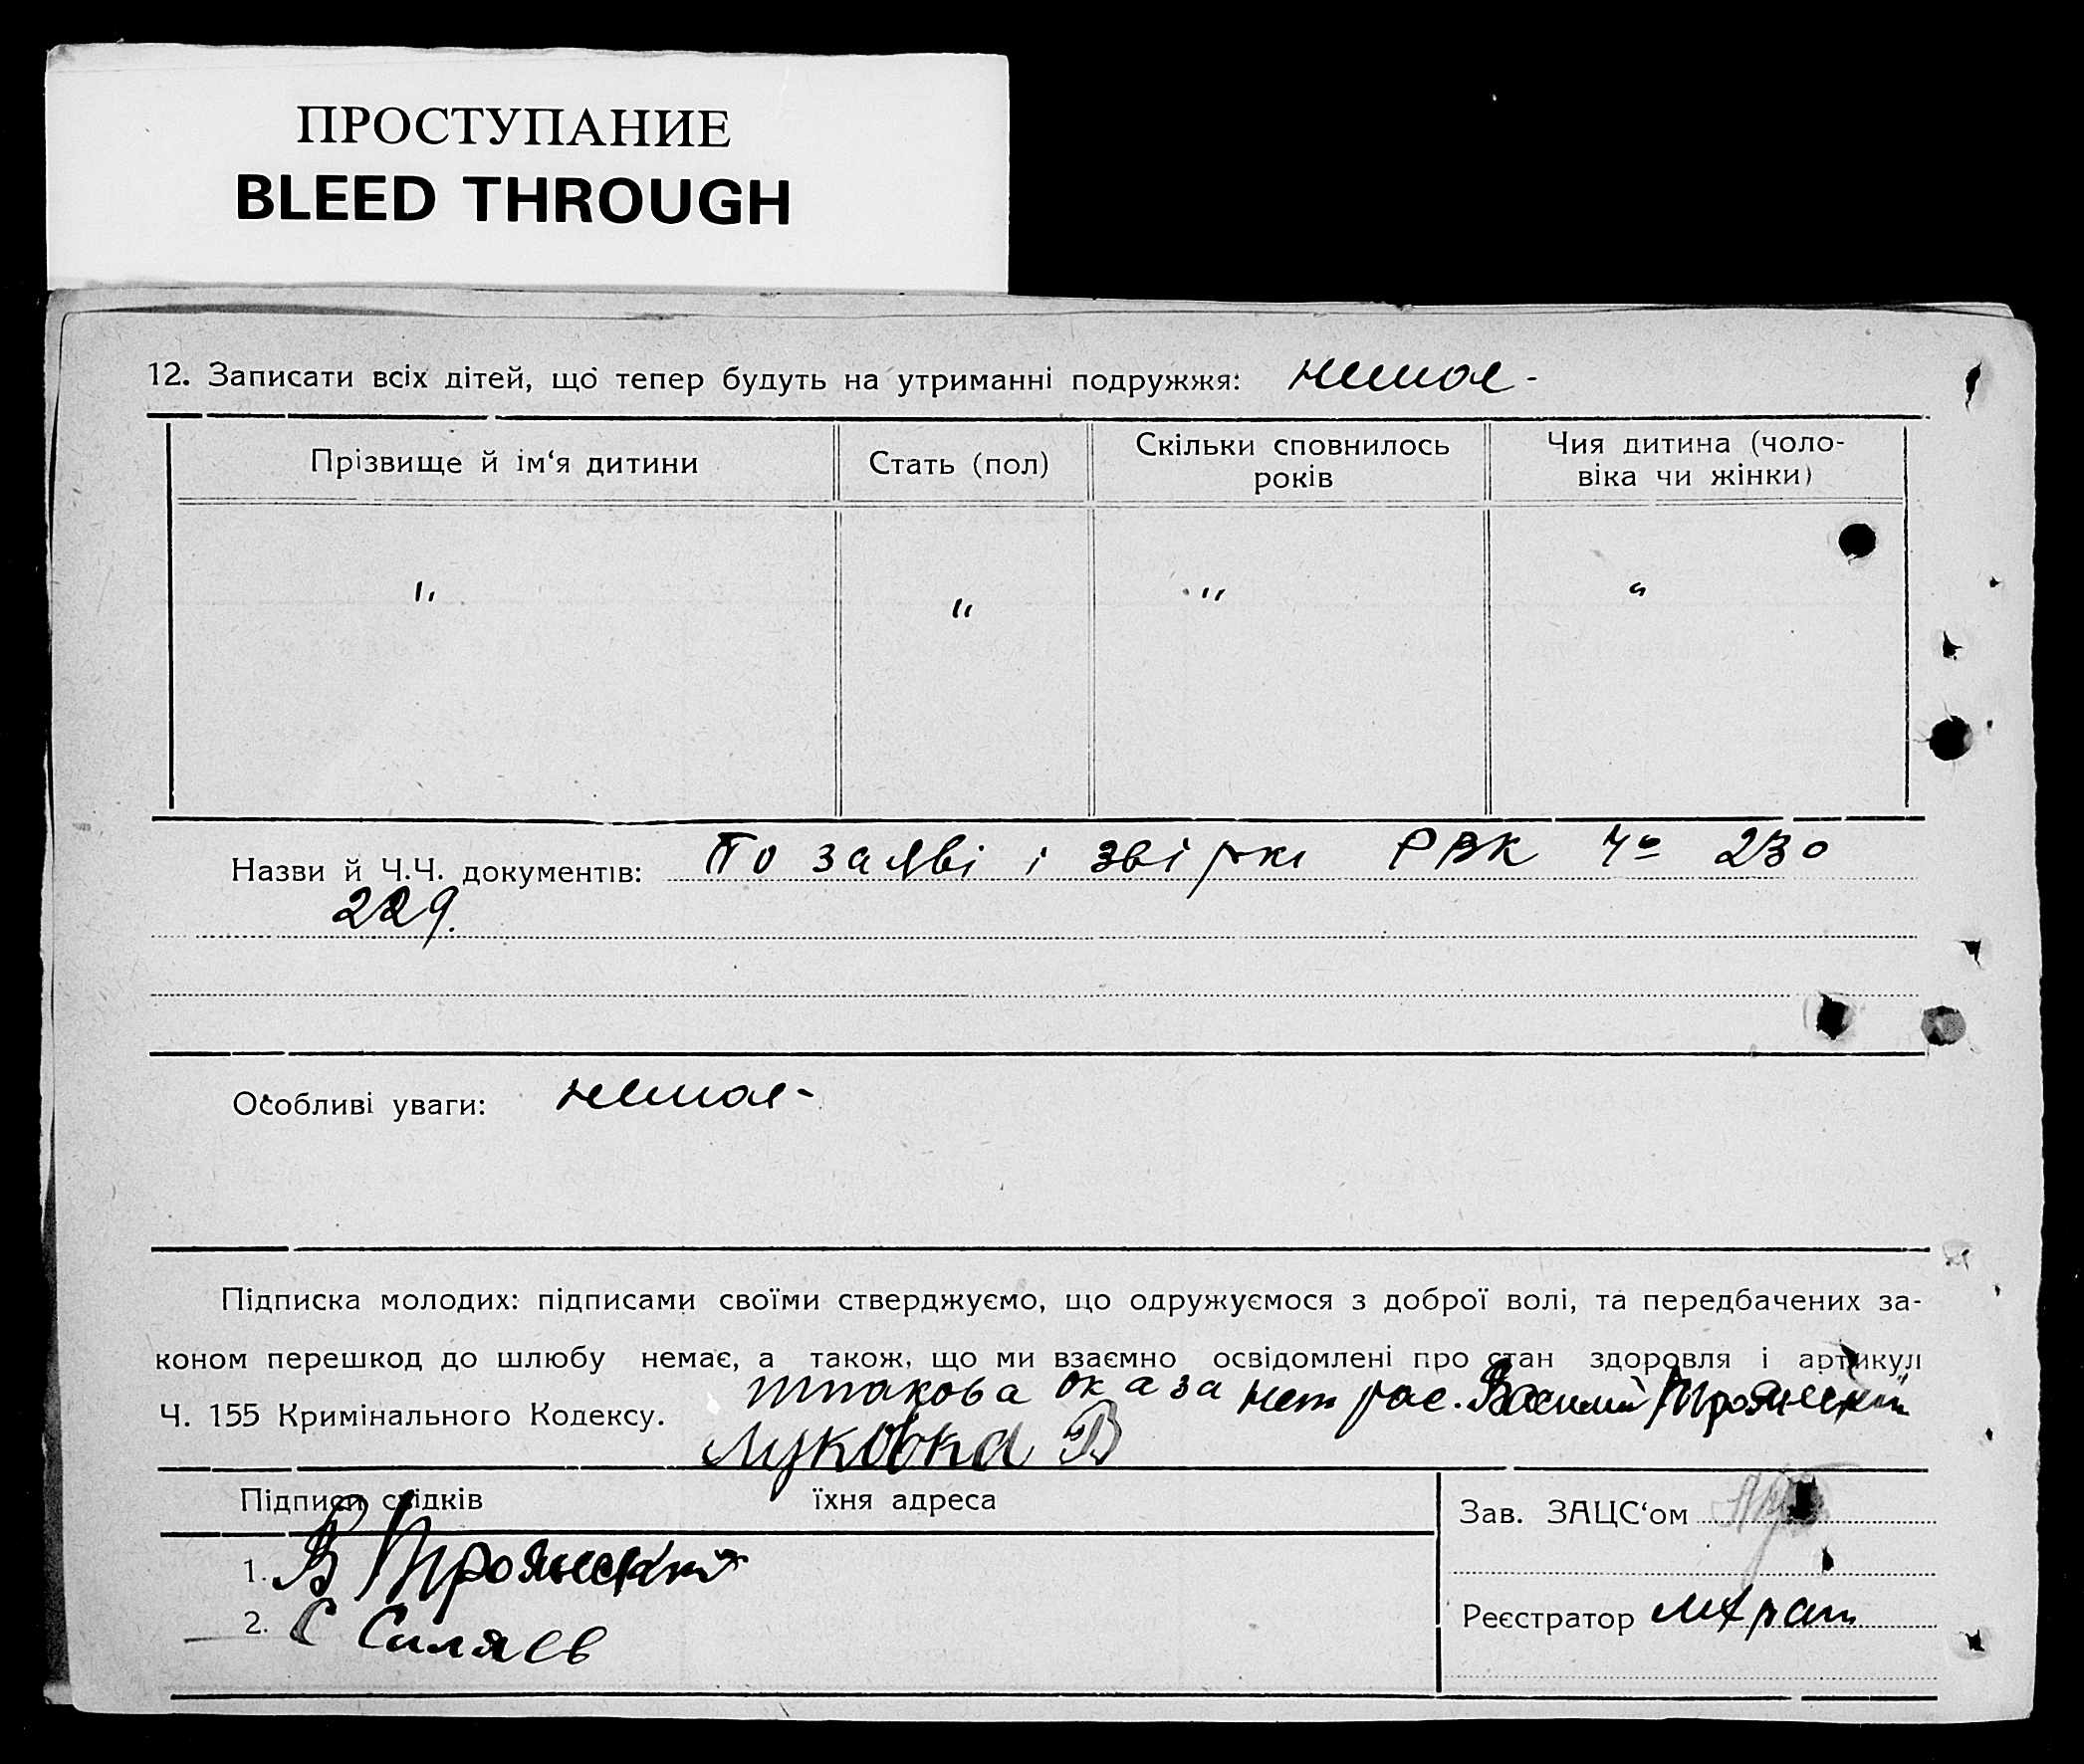 ПРОСТУПАНИЕ
BLEED THROUGH
12. Записати всіх дітей, що тепер будуть на утриманні подружжя: немає -
Прізвище й ім‘я дитини
Стать (пол)
Скільки сповнилось
років
Чия дитина (чоло-
віка чи жінки)
" " " "
Назви й Ч.Ч. документів: По заяві і звірки РВК Ч° 230
229.
Особливі уваги: немає -
Підписка молодих: підписами своїми стверджуємо, що одружуємося з доброї волі, та передбачених за-
коном перешкод до шлюбу немає, а також, що ми взаємно освідомлені про стан здоровля і артикул
Ч. 155 Кримінального Кодексу.
нет рас. Василий
Луковка В
Підписи свідків
їхня адреса
Зав. ЗАЦС‘ом
1. В
2. С Силяев
Реєстратор